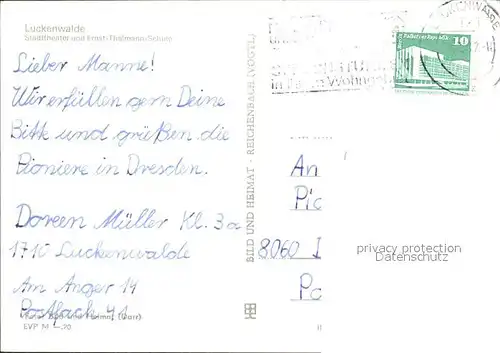 Luckenwalde
Stadttheater und Ernst-Thälmann-Schule
Lieber Manne!
Wir erfüllen gern Deine
Bitte und grüßen die
Pioniere in Dresden.
Doreen Müller Kl. 3a
1710 Luckenwalde
Am Anger 19
Postfach 41
EVP M -,20
BILD UND HEIMAT · REICHENBACH (VOGTL)
10
An
Pio
8060 D
Po
privacy protection
Datenschutz